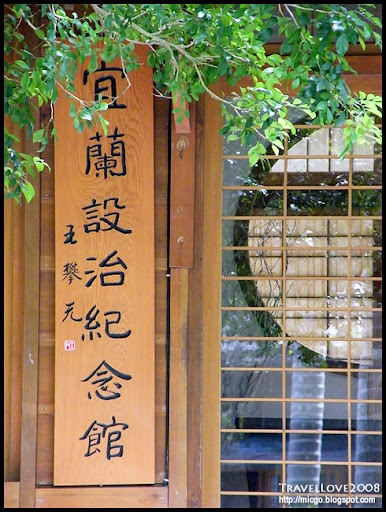 宜蘭設治紀念館
王攀元
TRAVELLOVE2008
http://micgo.blogspot.com